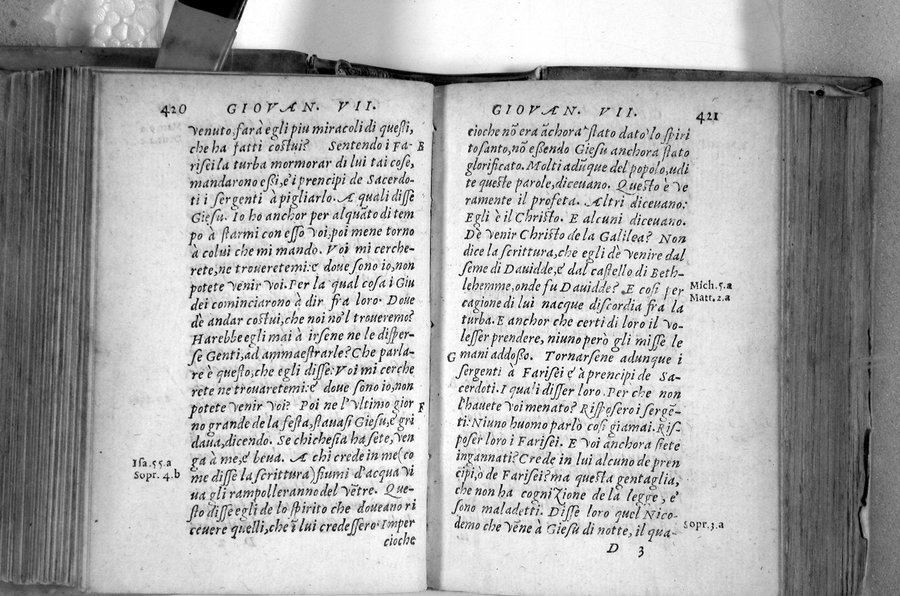 420 GIOVAN. VII.
venuto farà egli piu miracoli di questi,
che ha fatti costui? Sentendo i Fa-
B
risei la turba mormorar di lui tai cose,
mandarono essi, e i prencipi de Sacerdo-
ti i sergenti à pigliarlo. A quali disse
Giesu. Io ho anchor per alquãto di tem
po à starmi con esso voi, poi mene torno
à colui che mi mando. Voi mi cerche-
rete, ne trouereteme: e doue sono io, non
potete venir voi. Per la qual cosa i Giu
dei cominciarono à dir fra loro. Doue
de andar costui, che noi no'l troueremo?
Harebbe egli mai à irsene ne le disper-
se Genti, ad ammaestrarle? Che parla-
re è questo, che egli disse: Voi mi cerche
rete ne trouaretemi: e doue sono io, non
potete venir voi? Poi ne l'vltimo gior
F
no grande de la festa, stauasi Giesu, e gri
daua, dicendo. Se chichesia ha sete, ven
ga à me, e beua. A chi crede in me (co
Isa.55.a
me disse la scrittura) fiumi d'acqua vi
Sopr. 4.b
ua gli rampolleranno del vẽtre. Que-
sto disse egli de lo spirito che doueano ri
ceuere quelli, che ĩ lui credessero. Imper
cioche
GIOVAN. VII. 421
cioche nõ era ãchora stato dato lo spiri
to santo, nõ essendo Giesu anchora stato
glorificato. Molti adũque del popolo, udi
te queste parole, diceuano. Questo è ve
ramente il profeta. Altri diceuano:
Egli è il Christo. E alcuni diceuano.
De venir Christo de la Galilea? Non
dice la scrittura, che egli dè venire dal
seme di Dauidde, e dal castello di Beth-
lehemme, onde fu Dauidde? E cosi per
Mich.5.a
cagione di lui nacque discordia fra la
Matt.2.a
turba. E anchor che certi di loro il vo-
lesser prendere, niuno però gli misse le
mani addosso. Tornarsene adunque i
G
sergenti à Farisei e à prencipi de Sa-
cerdoti. I quali disser loro. Per che non
l'hauete voi menato? Risposero i sergẽ-
ti. Niuno huomo parlò cosi giamai. Ris-
poser loro i Farisei. E voi anchora siete
ingannati? Crede in lui alcuno de pren
cipi, ò de Farisei? ma questa gentaglia,
che non ha cognizione de la legge, e'
sono maladetti. Disse loro quel Nico-
demo che vẽne à Giesu di notte, il qua-
Sopr.3.a
D 3